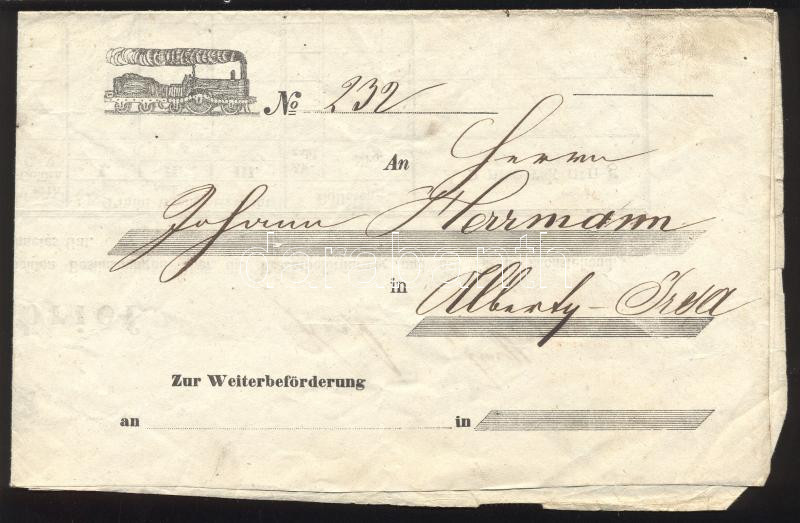 No 232
An Herrn
Johann Herrmann
darabanth
in Alberty-Irsa
Zur Weiterbeförderung
an in